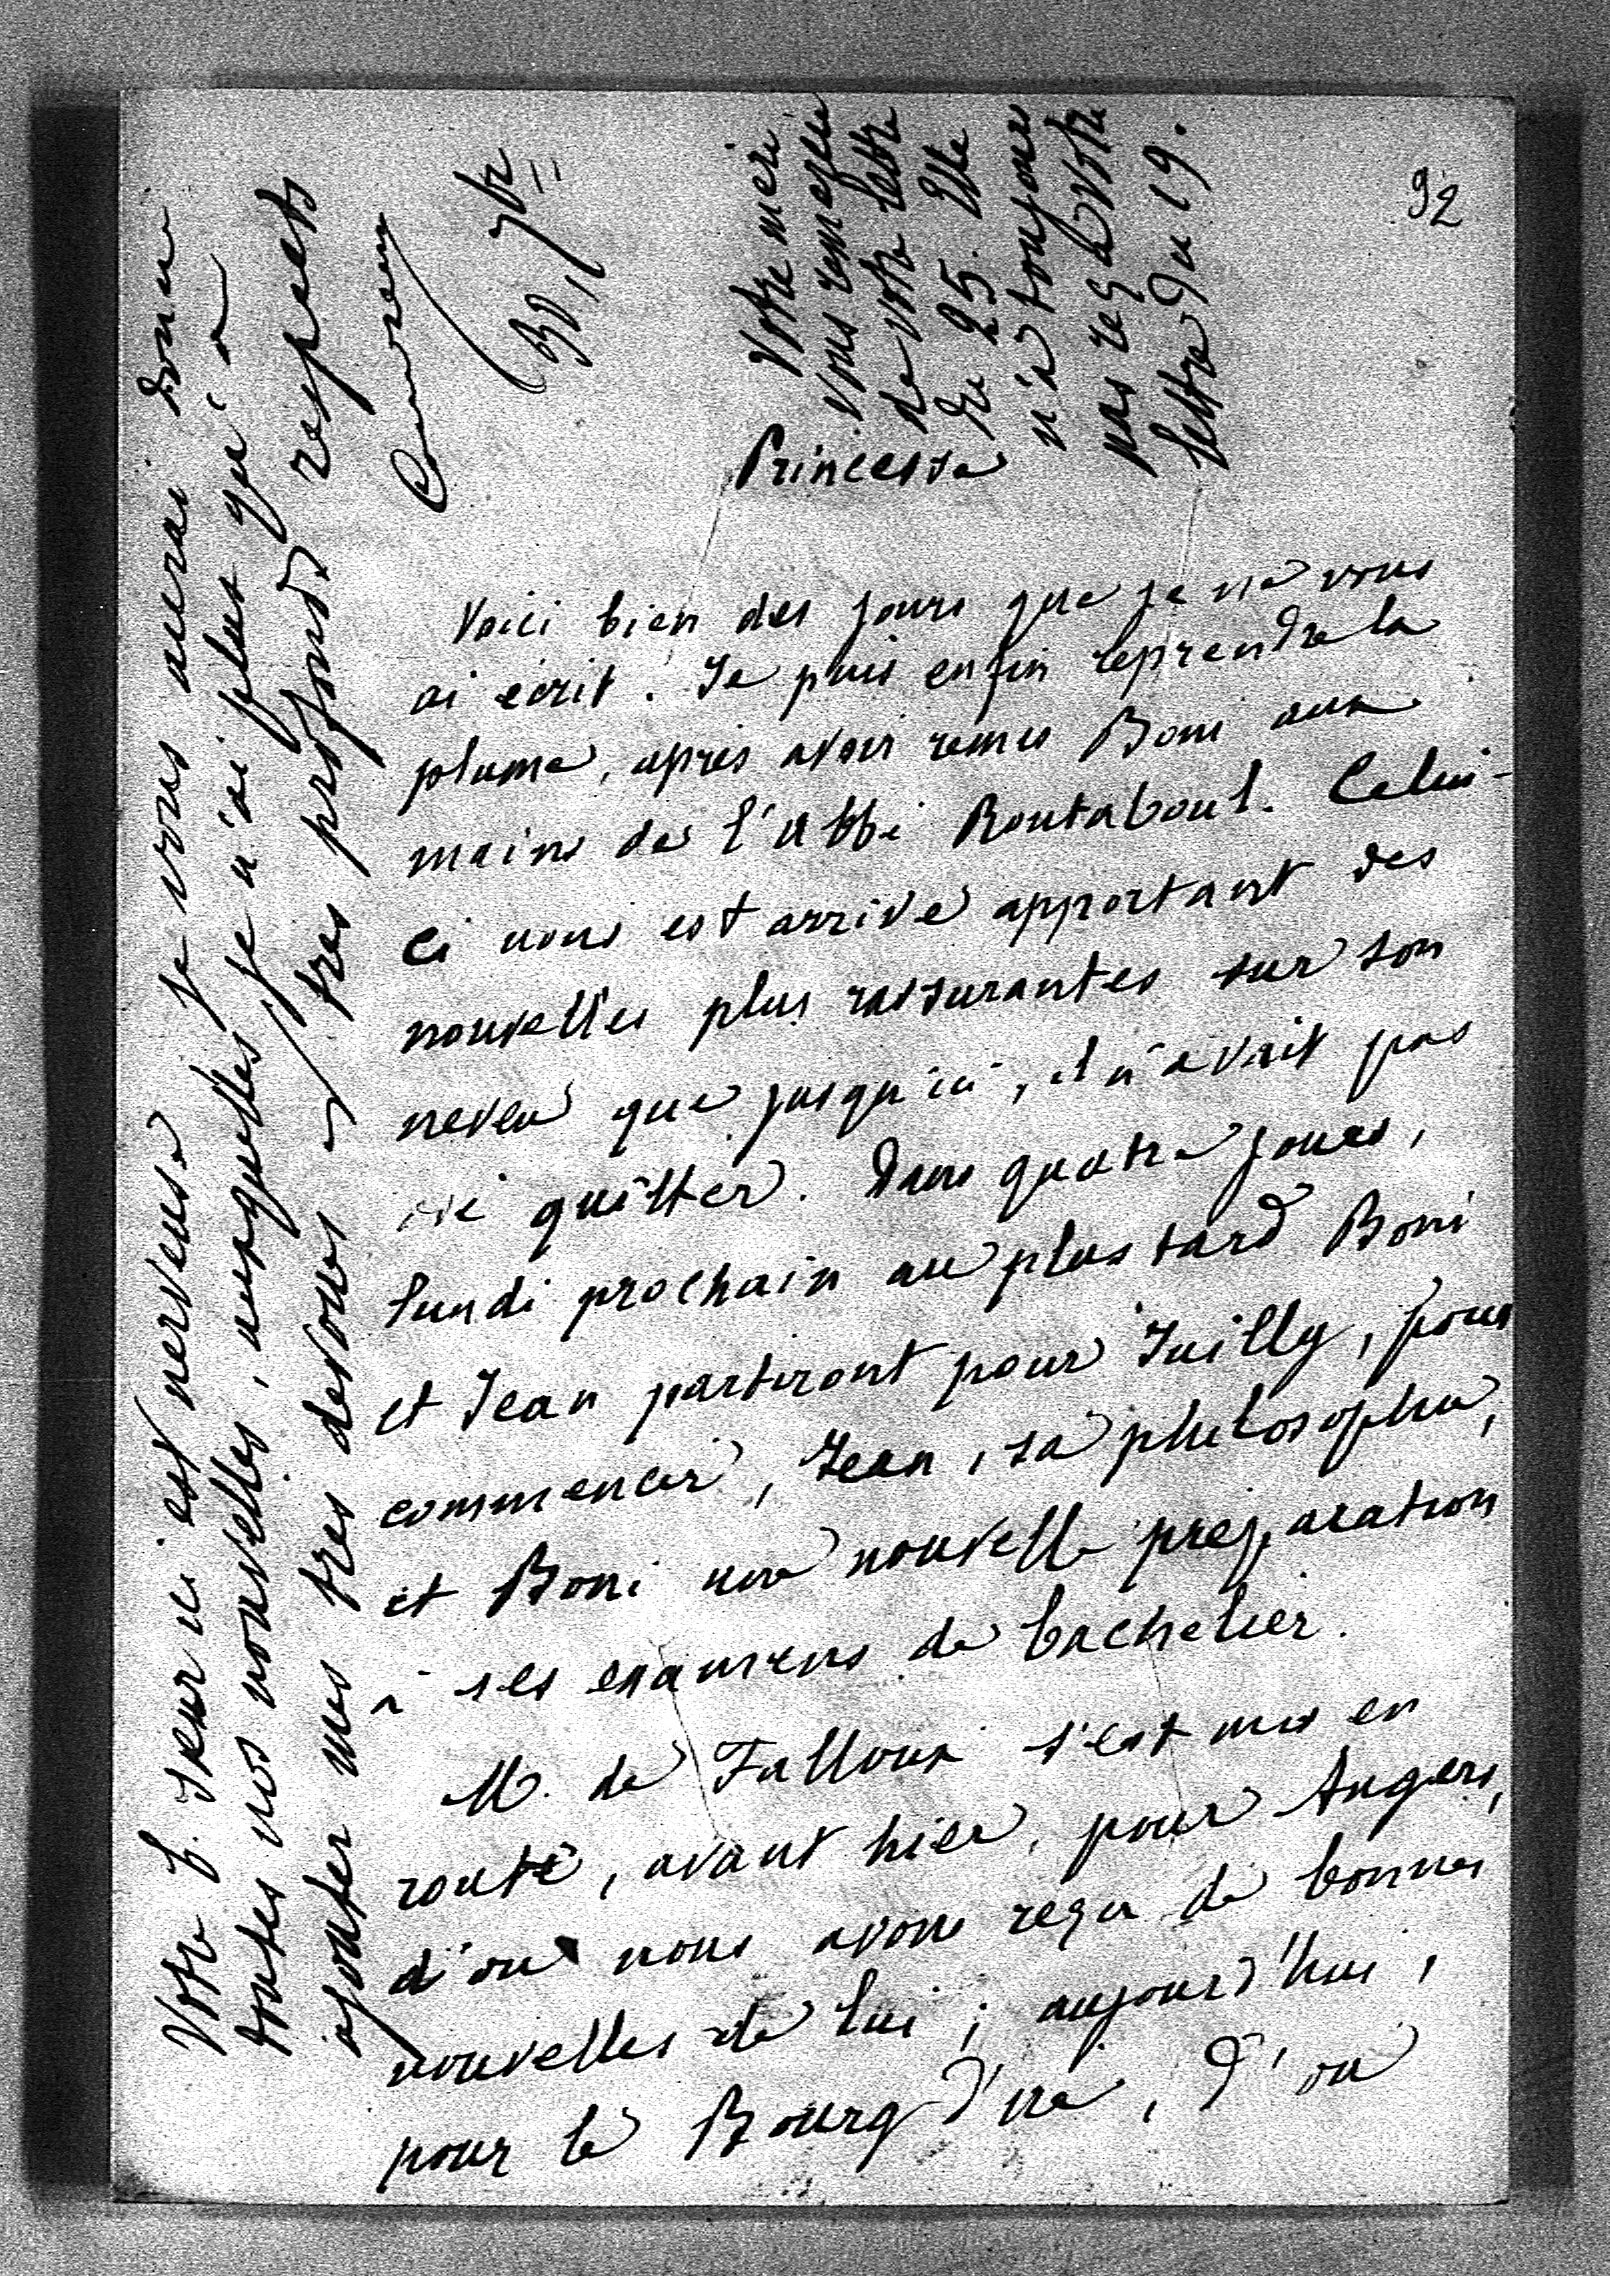 92
Votre mère
vous remercie
de votre lettre
du 25. Elle
n'a toujours
pas reçu votre
lettre du 19.
Princesse
Voici bien des jours que je ne vous
ai écrit. Je puis enfin reprendre la
plume, après avoir remis Boni aux
mains de l'Abbé Routaboul. Celui-
ci nous est arrivé apportant des
nouvelles plus rassurantes sur son
neveu que jusqu'ici, il n'avait pas
osé quitter. Dans quatre jours,
lundi prochain au plus tard Boni
et Jean partiront pour Juilly, pour
commencer, Jean, sa philosophie,
et Boni une nouvelle préparation
à ses examens de bachelier.
M. de Falloux s'est mis en
route, avant hier, pour Angers,
d'où nous avons reçu de bonnes
nouvelles de lui; aujourd'hui,
pour le Bourg d'Iré, d'où
Votre f. Sœur ici est nerveuse je vous aurai donné
toutes nos nouvelles, auxquelles je n'ai plus qu'à
ajouter mes très dévoués et très profonds respects
30, 7br